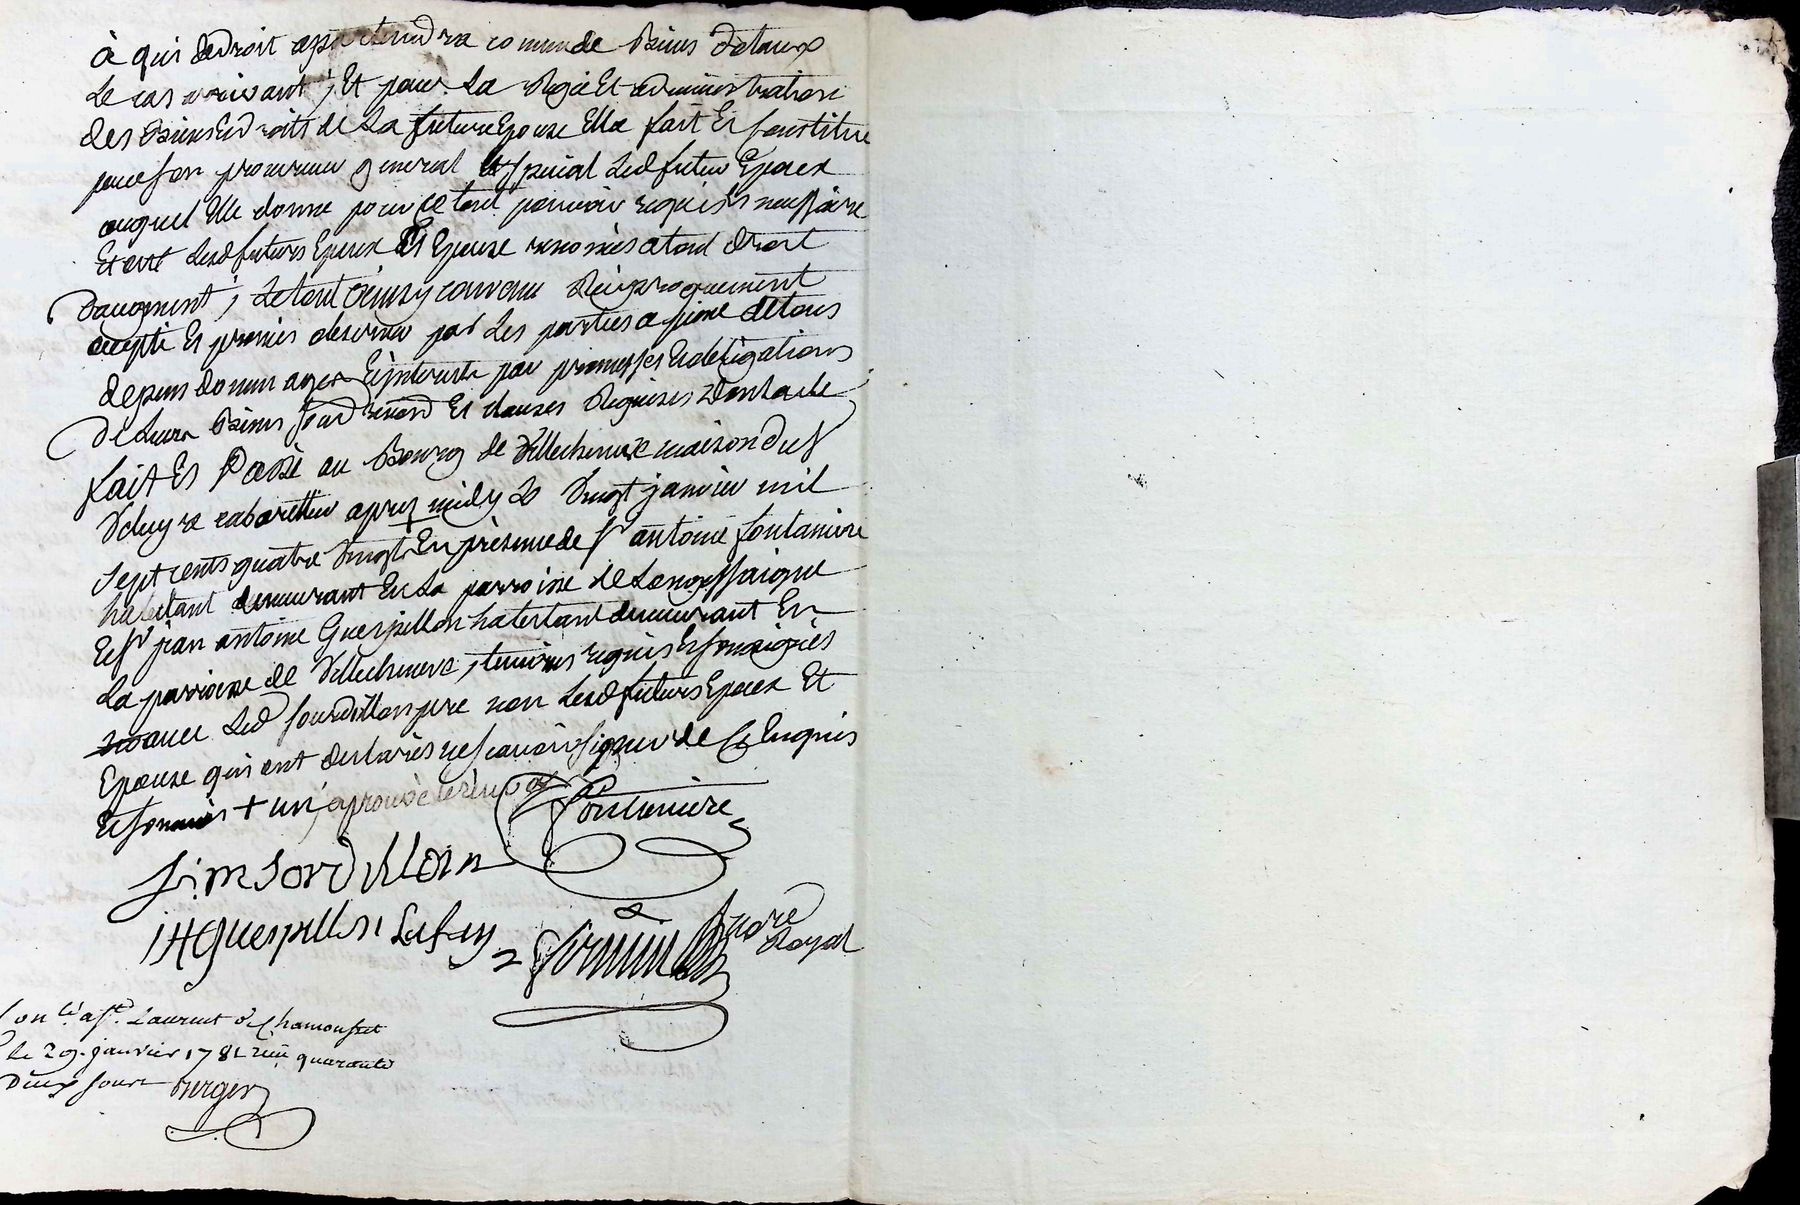 à qui de droit appartiendra comme de Biens dotaux
Le cas arrivant, Et pour La Regie Et administration
des Biens Et droits de La future Epouse Elle fait Et Constitue
pour son procureur general Et special Led futur Epoux
auquel Elle donne pour ce tout pouvoir requis Et necessaire
Et ont Lesd futurs Epoux Et Epouse renoncés a tout droit
Daugment, Le tout Ainsy convenu Reciproquement
accepté Et promis observer par Les parties a peine de tous
depens dommages Et jnterests par promesses Et obligations
De Leurs Biens Et clauses Requises Dont acte
fait Et Passé au Bourg de Villecheneve maison du Sr
cabaretier apres midy Le Vingt janvier mil
Sept cents quatre Vingt + En présence de Sr antoine fontaniere
habitant demeurant En La parroisse de Longessaigne
Et Sr jean antoine Guerpillon habitant demeurant En
La parroisse de Villecheneve, temoins requis Et soussignés
avec Led Sourdillon pere non Lesd futurs Epoux Et
Epouse qui ont declarés ne sçavoir signer de Ce Enquis
Et sommés + un approuvé
Fontaniere
Sim Sordillon
JA Guerpillon Lafay
Nore
Royal
Conlé a St Laurent de Chamousset
le 29 janvier 1781 quarante
Deux sous Berger